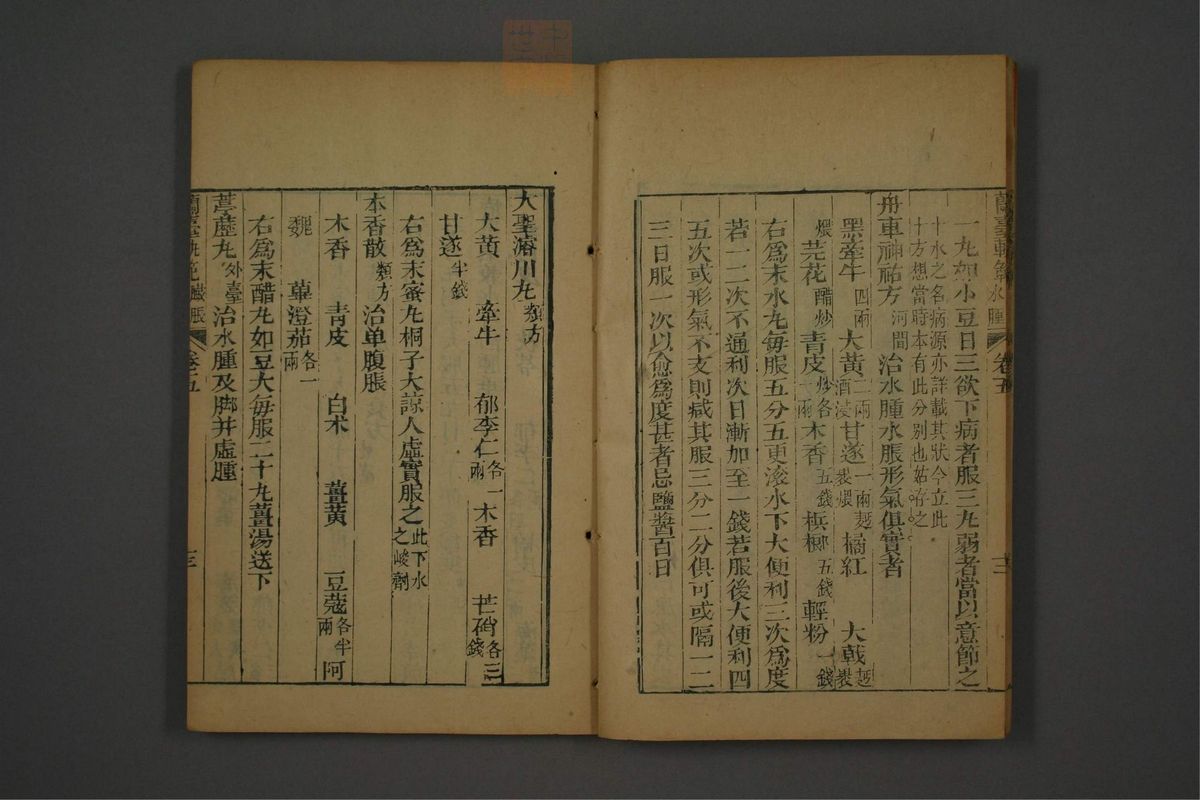 蘭臺軌範水腫 卷五 三
一丸如小豆日三欲下病者服三丸弱者當以意節之
十水之名病源亦詳載其狀今立此
十方想當時本有此分別也姑存之
舟車神祐方河間治水腫水脹形氣俱實者
黑牽牛四兩 大黃二兩酒浸 甘遂一兩麪裹煨 橘紅 大戟麪裹
煨 芫花醋炒 青皮炒各一兩 木香五錢 檳榔五錢 輕粉一錢
右為末水丸每服五分五更滾水下大便利三次為度
若一二次不通利次日漸加至一錢若服後大便利四
五次或形氣不支則减其服三分二分俱可或隔一二
三日服一次以愈為度甚者忌鹽醬百日
大聖濬川丸類方
大黃 牽牛 郁李仁各一兩 木香 芒硝各三錢
甘遂半錢
右為末蜜丸桐子大諒人虛實服之此下水之峻劑
木香散類方 治单腹脹
木香 青皮 白术 薑黃 豆蔻各半兩 阿
魏 蓽澄茄各一兩
右為末醋丸如豆大每服二十丸薑湯送下
葶藶丸外臺 治水腫及脚并虛腫
蘭臺軌範臌脹 卷五 三